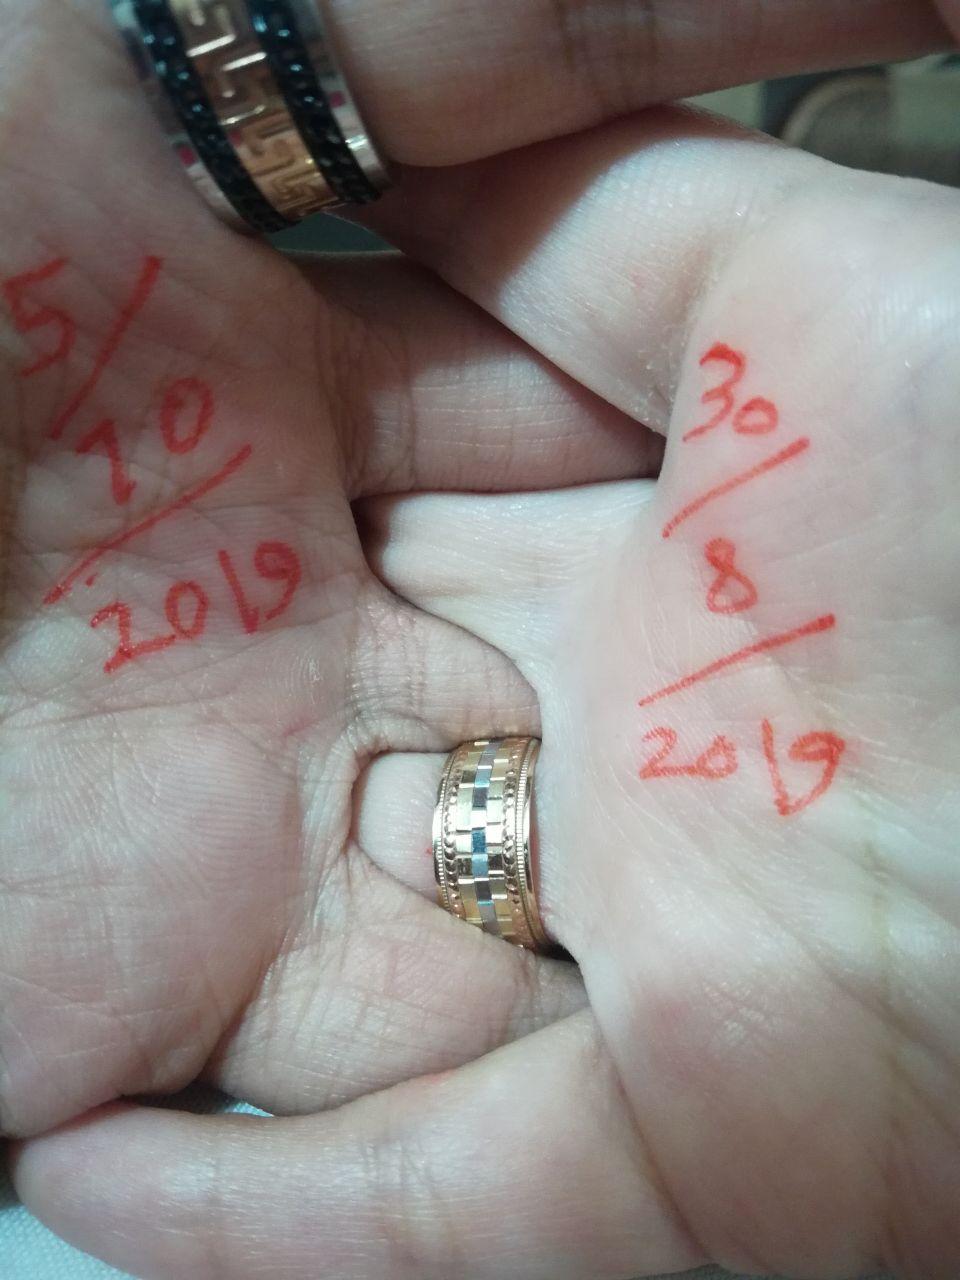 5/
10/
2019
30
/
8
/
2019